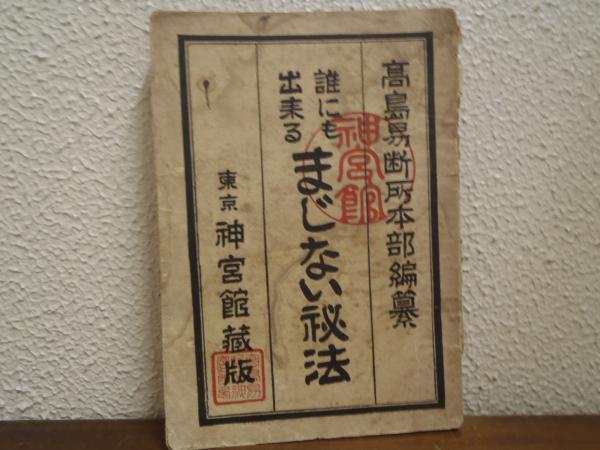 高島易断所本部編纂
誰にも
出来る
まじない秘法
東京
神宮館蔵版
神宮館